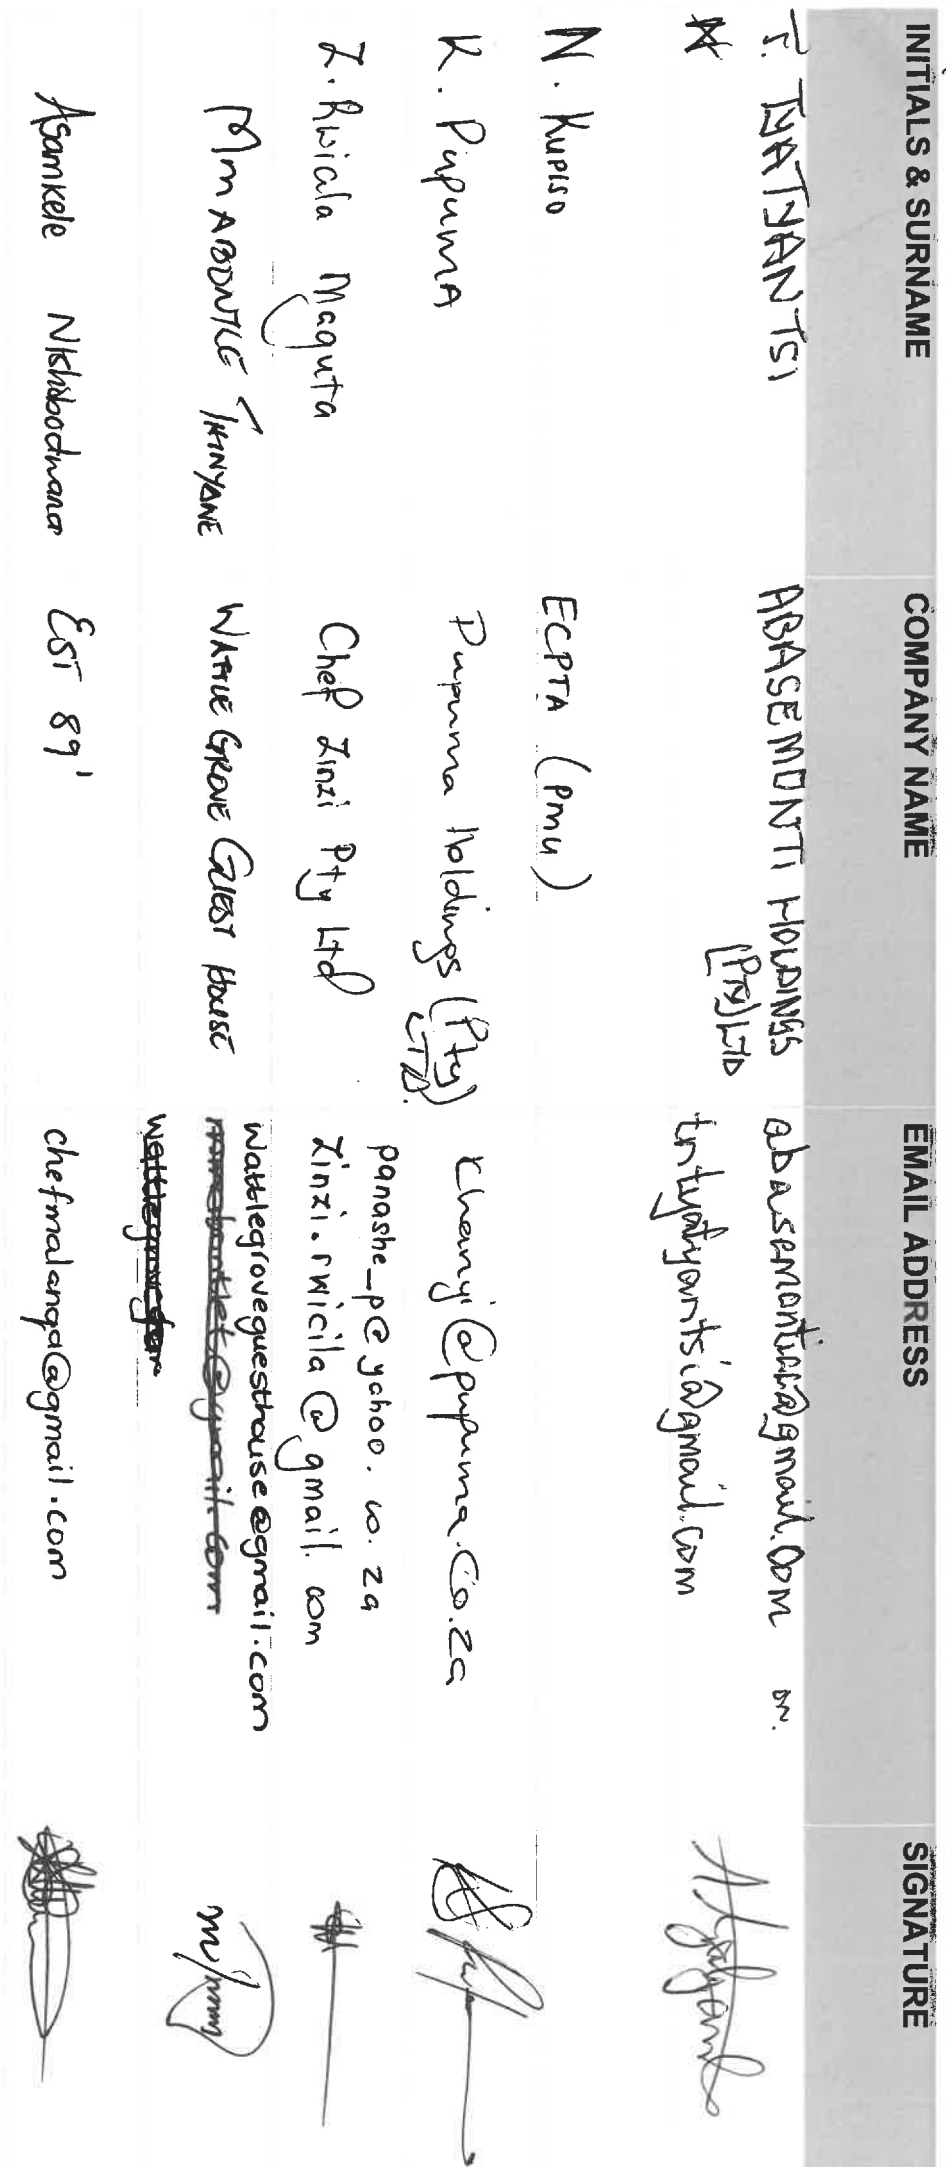 INITIALS & SURNAME COMPANY NAME EMAIL ADDRESS SIGNATURE
T. TYATYANTSI ABASEMONTI HOLDINGS (Pty) LTD abasemontihh@gmail.com or.
tntyatyantsi@gmail.com
N. Kupiso ECPTA (PMU)
K. PupumA Pupuma Holdings (Pty) LTD. Khanyi@pupuma.co.za
panashe_p@yahoo.co.za
Z. Rwicila Maquta Chef Zinzi Pty Ltd Zinzi.rwicila@gmail.com
MmABONTLE THINYANE WATTLE GROVE GUEST HOUSE wattlegroveguesthouse@gmail.com
Asamkele Ntshobodwana EST 89' chefmalanga@gmail.com